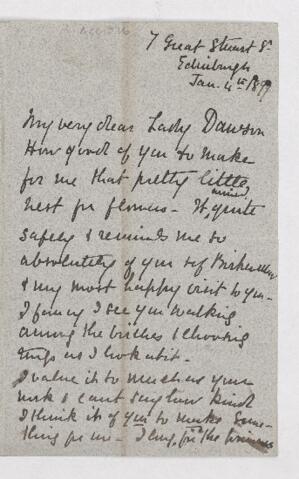 7 Great Stuart St
Edinburgh
Jan. 4th 1899
My very dear Lady Dawson
How good of you to make
for me that pretty little
nest for flowers - It,
arrived
quite
safely & reminds me so
absolutely of you &
& my most happy visit to you -
I fancy I see you walking
among the birches & choosing
twigs as I look at it -
I value it so much as your
work & cant say how kind
I think it of you to make some-
thing for me - I for the